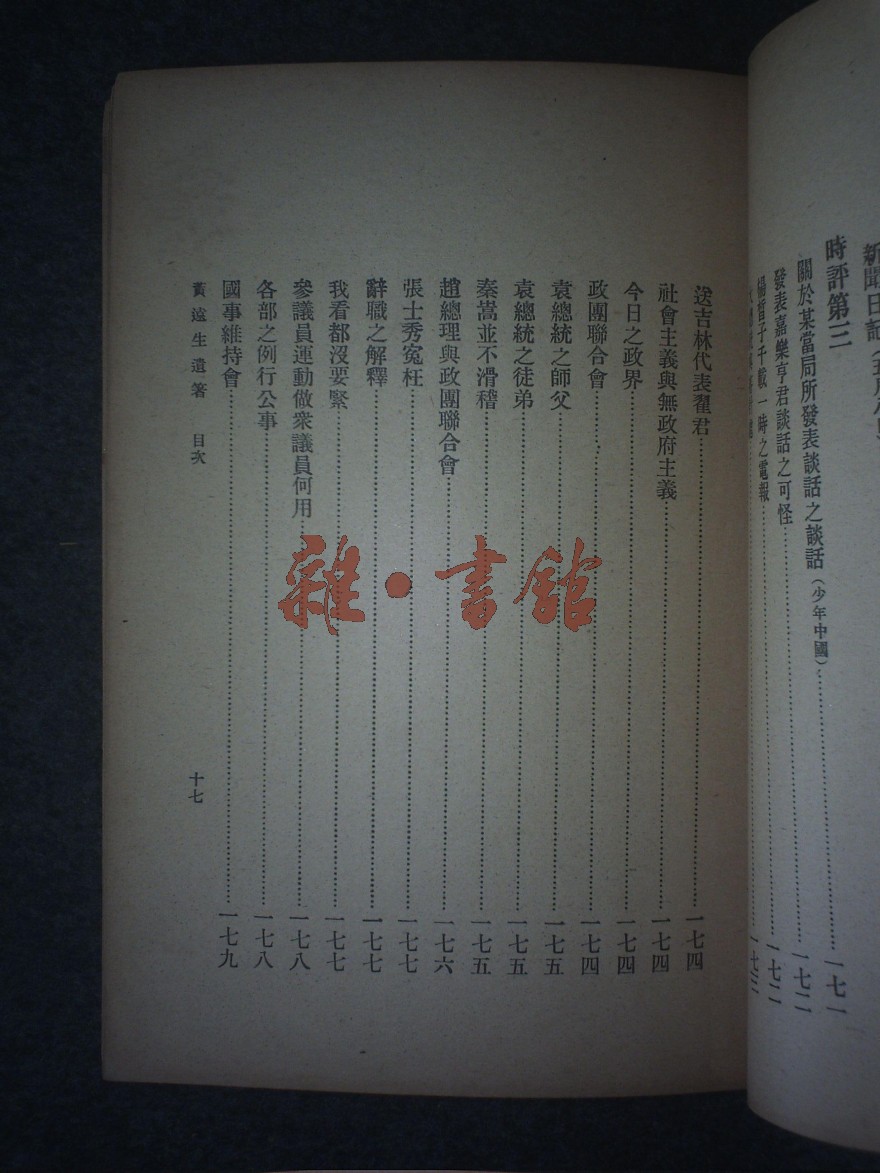 時評第三
關於某當局所發表談話之談話(少年中國)……一七一
發表嘉樂亨君談話之可怪……一七二
楊晳子千載一時之電報……一七二
送吉林代表翟君……一七四
社會主義與無政府主義……一七四
今日之政界……一七四
政團聯合會……一七四
袁總統之師父……一七五
袁總統之徒弟……一七五
秦嵩並不滑稽……一七五
趙總理與政團聯合會……一七六
張士秀冤枉……一七七
辭職之解釋……一七七
我看都沒要緊……一七七
參議員運動做衆議員何用……一七八
各部之例行公事……一七八
國事維持會……一七九
黃遠生遺著 目次 十七
雜·書館